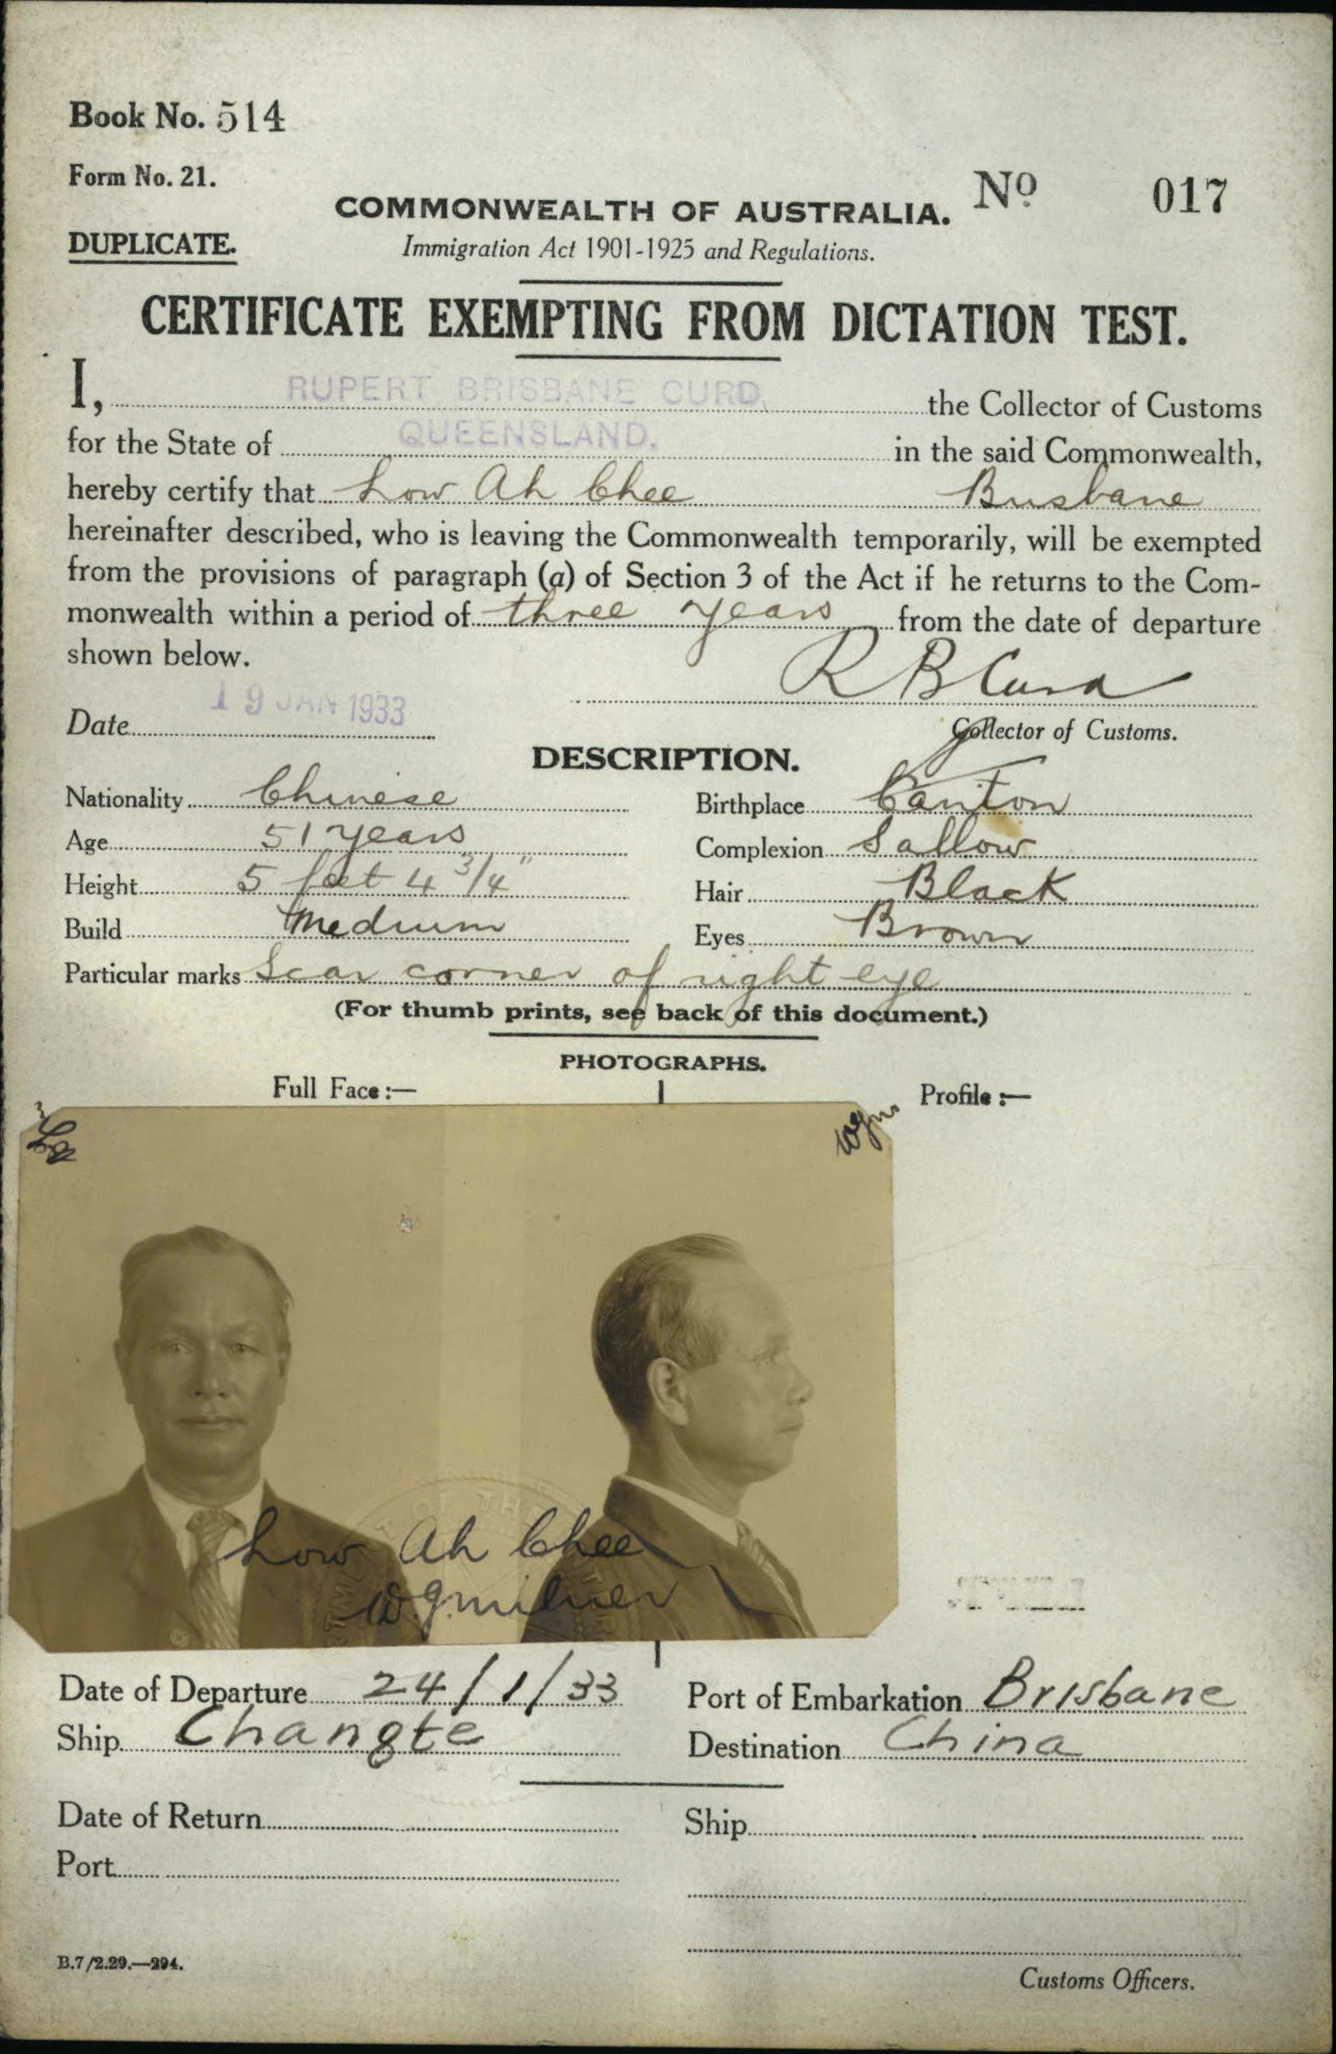 Book No. 514
Form No. 21.
DUPLICATE.
COMMONWEALTH OF AUSTRALIA.
No. 017
Immigration Act 1901-1925 and Regulations.
CERTIFICATE EXEMPTING FROM DICTATION TEST.
I, RUPERT BRISBANE CURD, the Collector of Customs
for the State of QUEENSLAND. in the said Commonwealth,
hereby certify that Low Ah Chee Brisbane
hereinafter described, who is leaving the Commonwealth temporarily, will be exempted
from the provisions of paragraph (a) of Section 3 of the Act if he returns to the Com-
monwealth within a period of three years from the date of departure
shown below.
R B Curd
Date 19 JAN 1933
Collector of Customs.
DESCRIPTION.
Nationality Chinese Birthplace Canton
Age 51 years Complexion Sallow
Height 5 feet 4 3/4" Hair Black
Build Medium Eyes Brown
Particular marks Scar corner of right eye
(For thumb prints, see back of this document.)
PHOTOGRAPHS.
Full Face :— Profile :—
Low Ah Chee
W.G. Milner
Date of Departure 24/1/33 Port of Embarkation Brisbane
Ship Changte Destination China
Date of Return Ship
Port
B.7/2.29.—294.
Customs Officers.